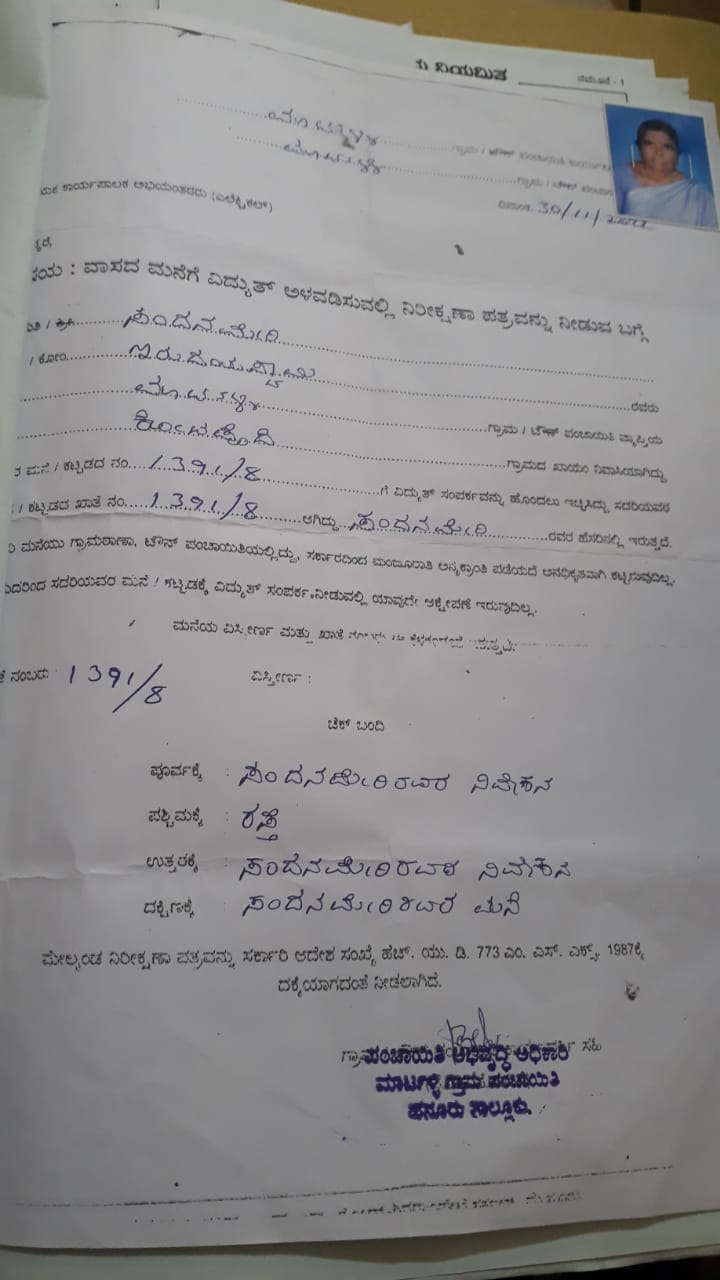 ು ನಿಯಮಿತ
ನಮೂನೆ - 1
ಗ್ರಾಮ / ಟೌನ್ ಪಂಚಾಯಿತಿ
ಗ್ರಾಮ / ಟೌನ್
ದಿನಾಂಕ 30/11/2022
ಕಾರ್ಯಪಾಲಕ ಅಭಿಯಂತರರು (ಎಲೆಕ್ಟ್ರಿಕಲ್)
: ವಾಸದ ಮನೆಗೆ ವಿದ್ಯುತ್ ಅಳವಡಿಸುವಲ್ಲಿ ನಿರೀಕ್ಷಣಾ ಪತ್ರವನ್ನು ನೀಡುವ ಬಗ್ಗೆ
ಸಂದನಮೇರಿ
/ ಕೋಂ ಇರುದಯಸ್ವಾಮಿ ರವರು
ಗ್ರಾಮ / ಟೌನ್ ಪಂಚಾಯಿತಿ ವ್ಯಾಪ್ತಿಯ
ಗ್ರಾಮದ ಖಾಯಂ ನಿವಾಸಿಯಾಗಿದ್ದು
ಮನೆ / ಕಟ್ಟಡದ ನಂ. 1391/8 ಗೆ ವಿದ್ಯುತ್ ಸಂಪರ್ಕವನ್ನು ಹೊಂದಲು ಇಚ್ಛಿಸಿದ್ದು ಸದರಿಯವರ
/ ಕಟ್ಟಡದ ಖಾತೆ ನಂ. 1391/8 ಆಗಿದ್ದು ಸಂದನಮೇರಿ ರವರ ಹೆಸರಿನಲ್ಲಿ ಇರುತ್ತದೆ.
ಮನೆಯು ಗ್ರಾಮಠಾಣಾ, ಟೌನ್ ಪಂಚಾಯಿತಿಯಲ್ಲಿದ್ದು, ಸರ್ಕಾರದಿಂದ ಮಂಜೂರಾತಿ ಅನ್ಯಕ್ರಾಂತಿ ಪಡೆಯದೆ ಅನಧಿಕೃತವಾಗಿ ಕಟ್ಟಿರುವುದಿಲ್ಲ.
ಸದರಿಯವರ ಮನೆ / ಕಟ್ಟಡಕ್ಕೆ ವಿದ್ಯುತ್ ಸಂಪರ್ಕ ನೀಡುವಲ್ಲಿ ಯಾವುದೇ ಆಕ್ಷೇಪಣೆ ಇರುವುದಿಲ್ಲ.
ಮನೆಯ ವಿಸ್ತೀರ್ಣ ಮತ್ತು ಖಾತೆ
ನಂಬರು 1391/8 ವಿಸ್ತೀರ್ಣ :
ಚೆಕ್ ಬಂದಿ
ಪೂರ್ವಕ್ಕೆ : ಸಂದನಮೇರಿರವರ ನಿವೇಶನ
ಪಶ್ಚಿಮಕ್ಕೆ : ರಸ್ತೆ
ಉತ್ತರಕ್ಕೆ : ಸಂದನಮೇರಿರವರ ನಿವೇಶನ
ದಕ್ಷಿಣಕ್ಕೆ : ಸಂದನಮೇರಿರವರ ಮನೆ
ಮೇಲ್ಕಂಡ ನಿರೀಕ್ಷಣಾ ಪತ್ರವನ್ನು ಸರ್ಕಾರಿ ಆದೇಶ ಸಂಖ್ಯೆ ಹೆಚ್. ಯು. ಡಿ. 773 ಎಂ. ಎಸ್. ಎಕ್ಸ್. 1987ಕ್ಕೆ
ದಕ್ಕೆಯಾಗದಂತೆ ನೀಡಲಾಗಿದೆ.
ಪಂಚಾಯಿತಿ ಅಭಿವೃದ್ಧಿ ಅಧಿಕಾರಿ
ಮಾರ್ಟಳ್ಳಿ ಗ್ರಾಮ ಪಂಚಾಯಿತಿ
ಹನೂರು ತಾಲ್ಲೂಕು.